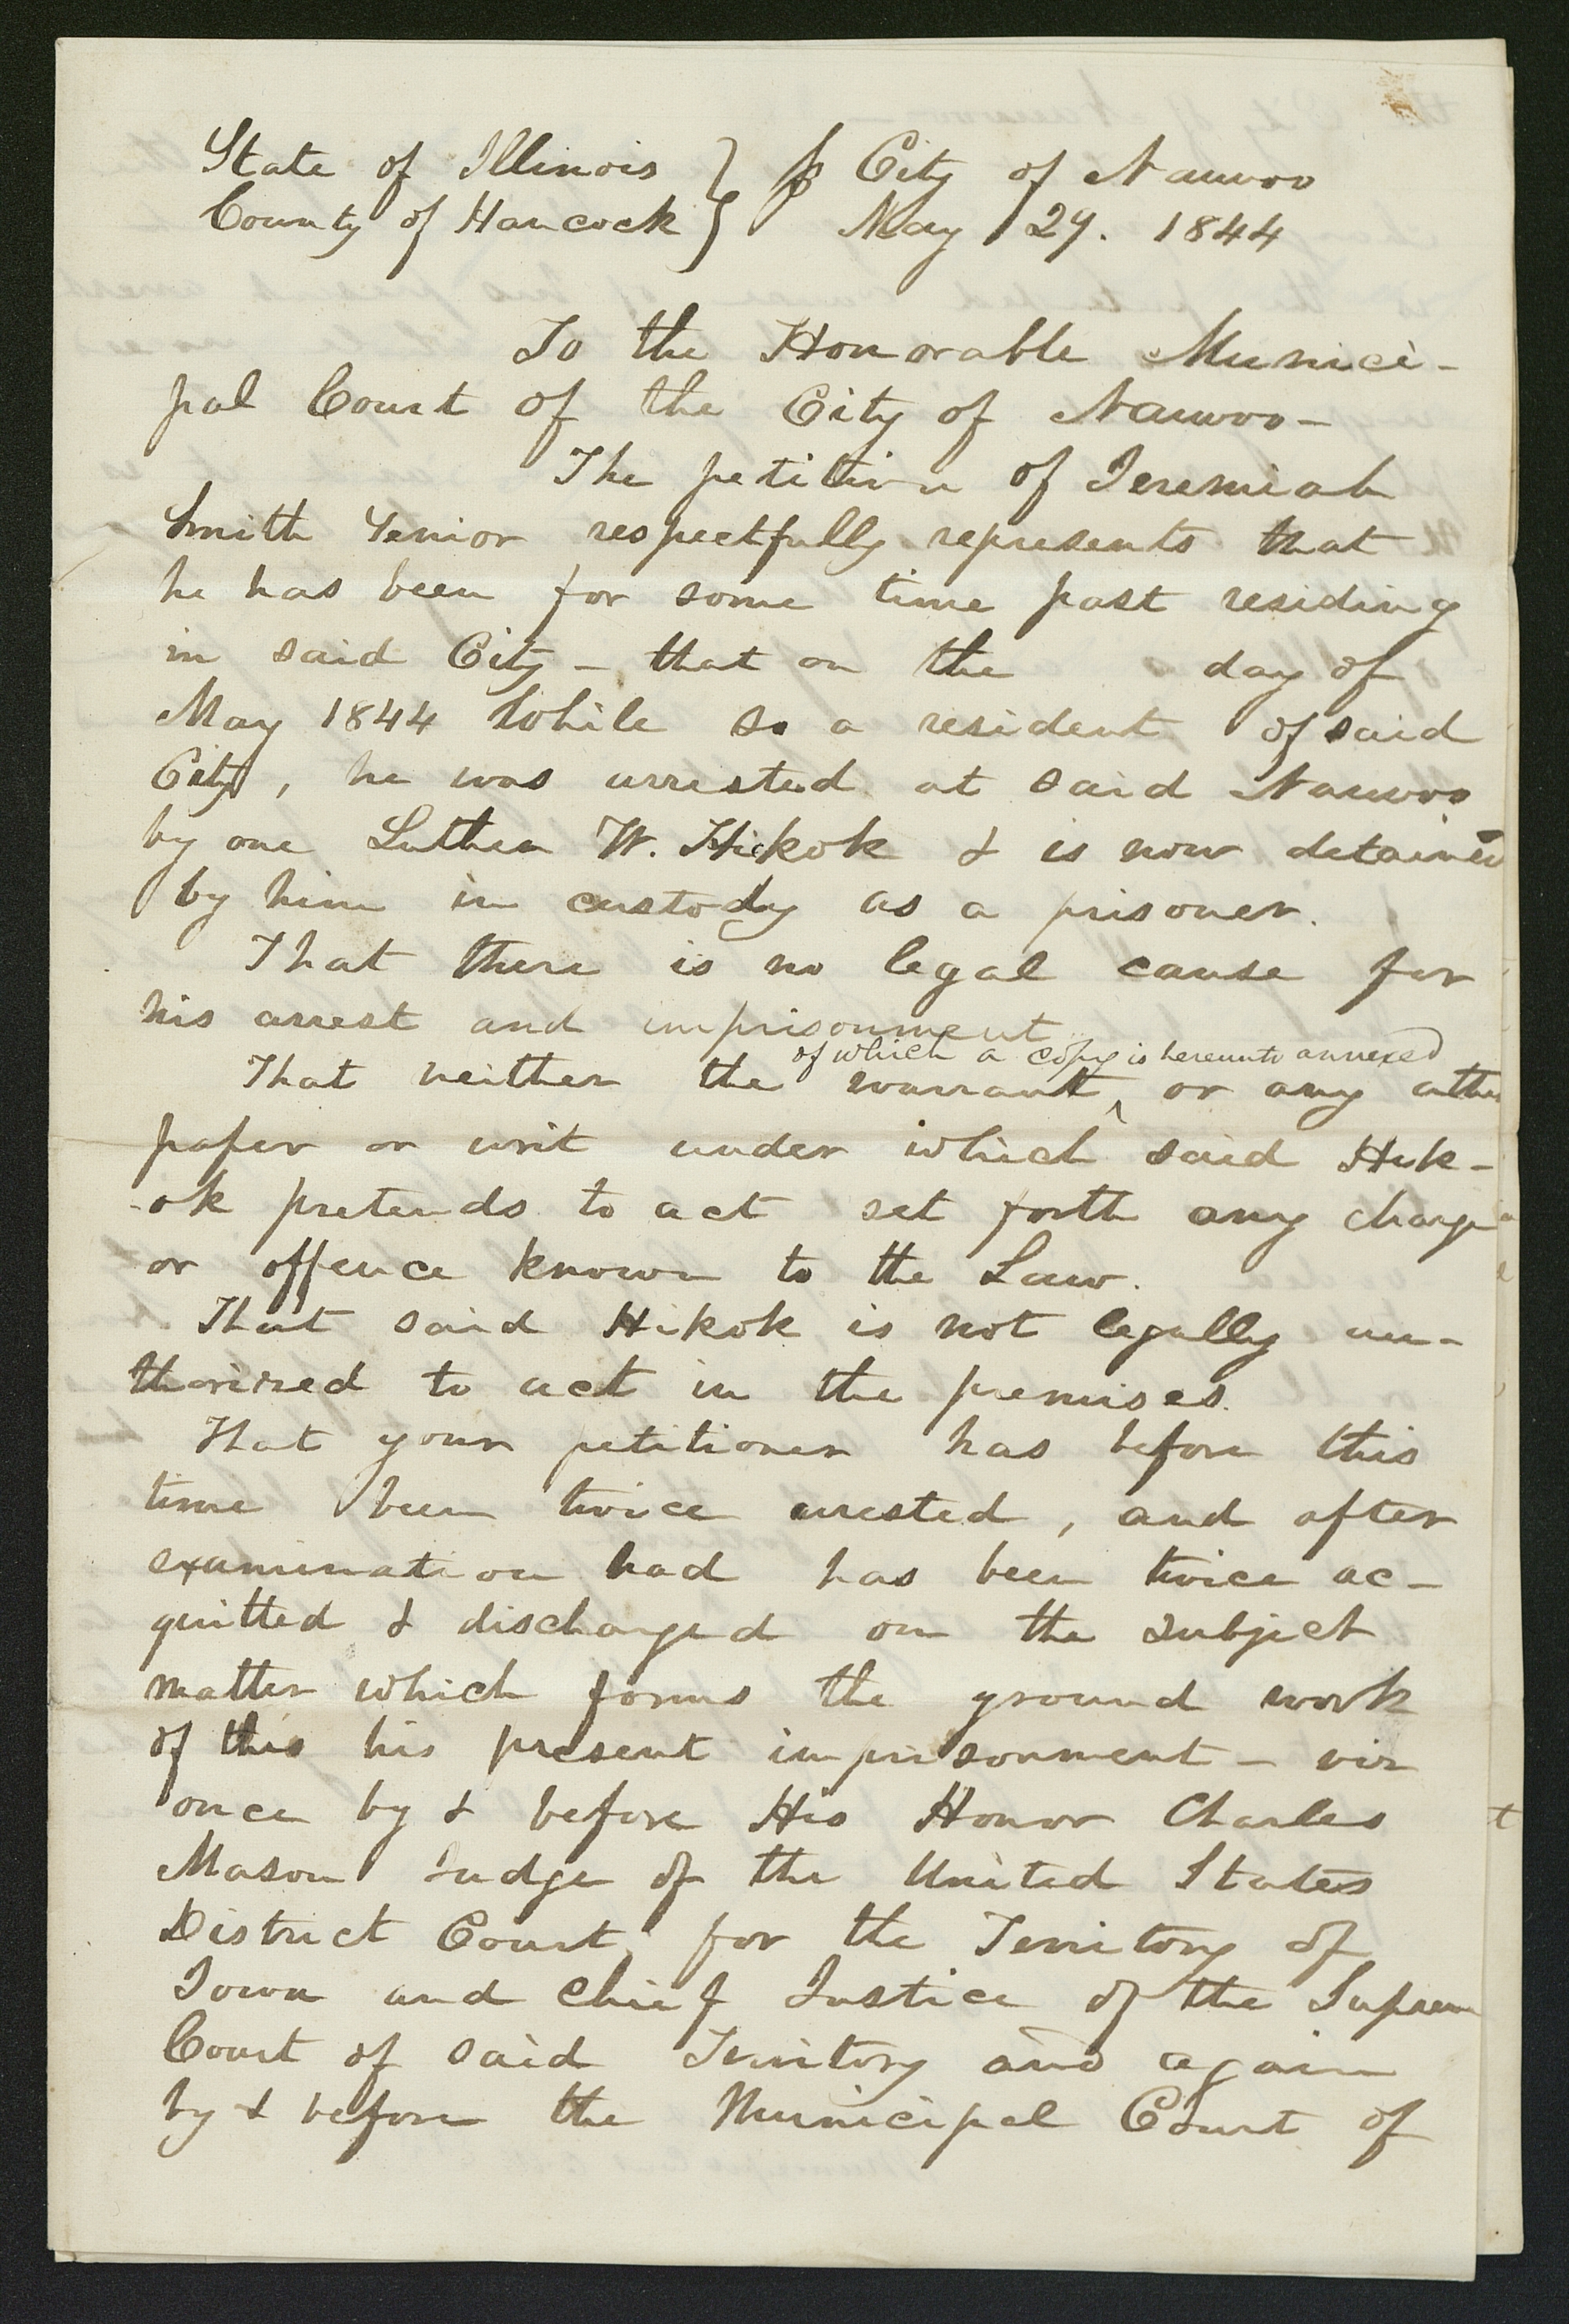 State of Illinois } ss City of Nauvoo
County of Hancock } May 29. 1844
To the Honorable Munici-
pal Court of the City of Nauvoo-
The petition of Jeremiah
Smith Senior respectfully represents that
he has been for some time past residing
in said City - that on the day of
May 1844 While so a resident of said
City, he was arrested at said Nauvoo
by one Luther W. Hickok & is now detained
by him in custody as a prisoner.
That there is no legal cause for
his arrest and imprisonment
of which a copy is hereunto annexed
That neither the warrant ^ or any other
paper or writ under which said Hik-
-ok pretends to act set forth any charge
or offence known to the Law.
That said Hikok is not legally au-
thorized to act in the premises.
That your petitioner has before this
time been twice arrested, and after
examination had has been twice ac-
quitted & discharged on the subject
matter which forms the ground work
of this his present imprisonment - viz
once by & before His Honor Charles
Mason Judge of the United States
District Court, for the Territory of
Iowa and Chief Justice of the Supreme
Court of said Territory and again
by & before the Municipal Court of